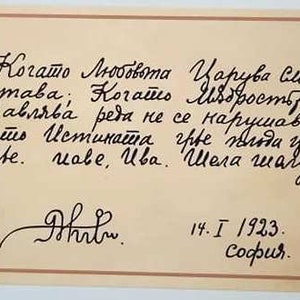 Когато Любовьта Царува см
тава; Когато Мѫдростьт
авлява реда не се нарушав
то Истината грѣе плода
ѣе. иаве, Ива. Шела
14. I 1923.
София.